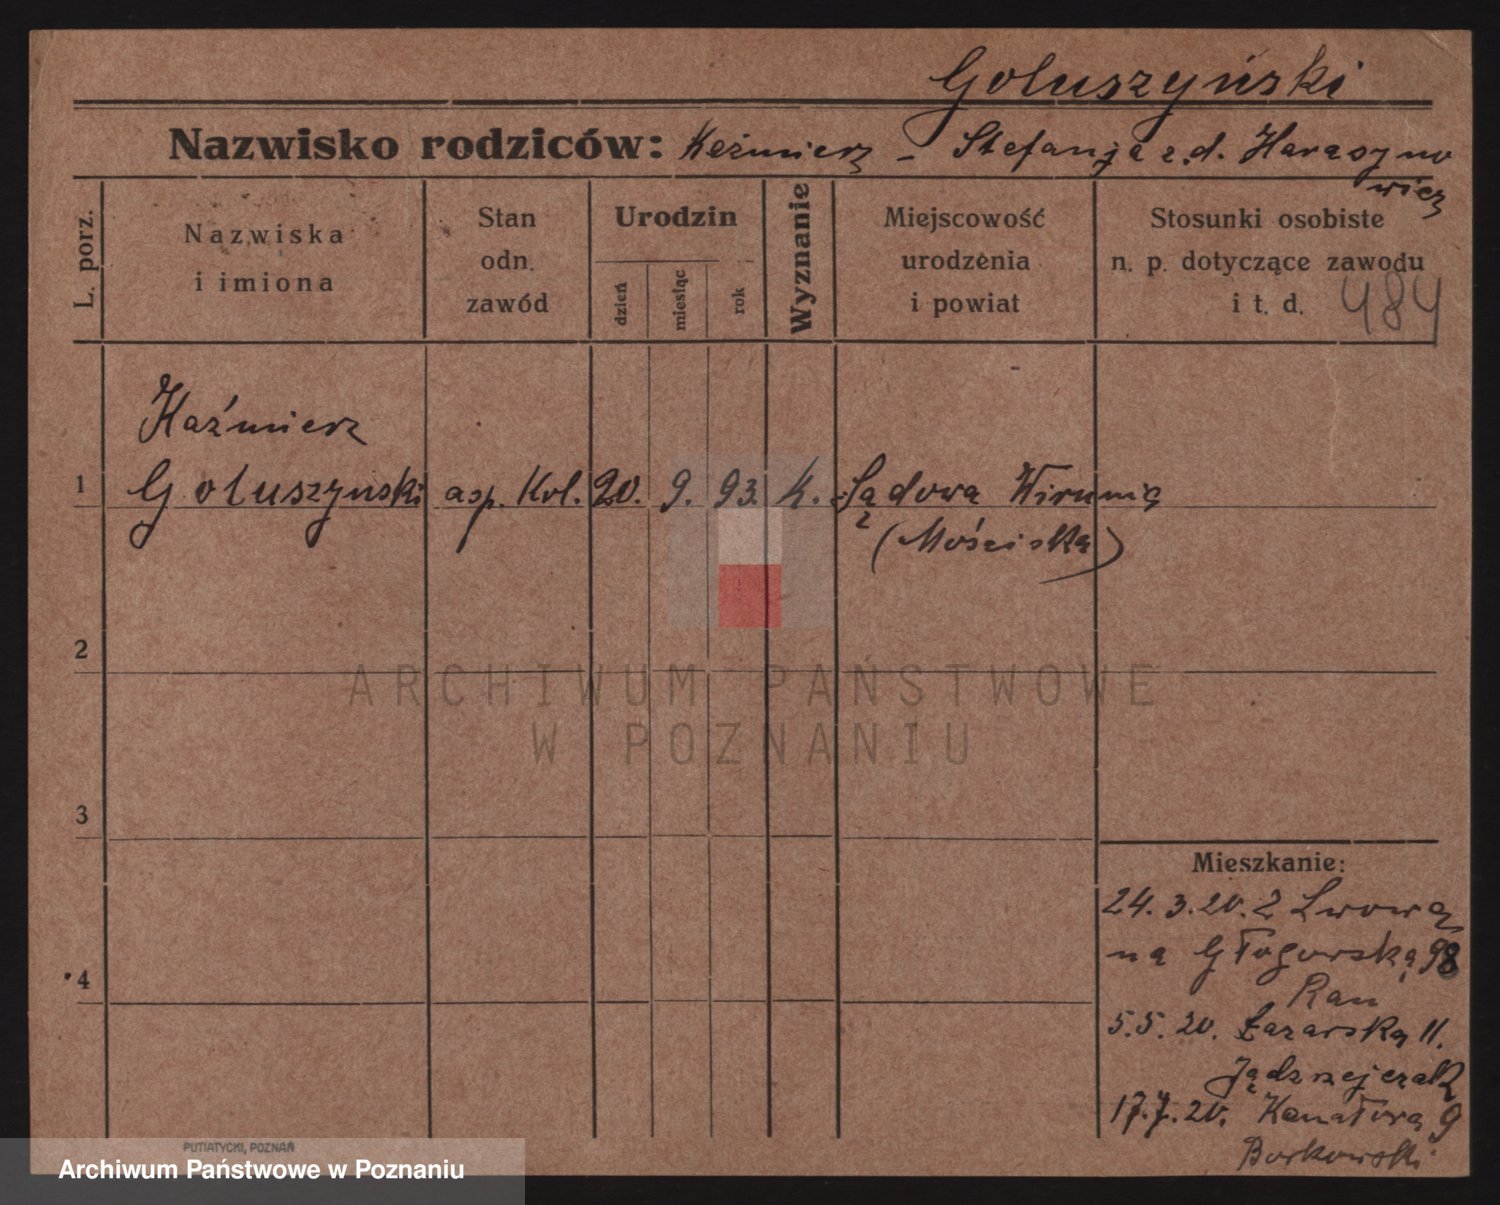 Goluszyński
Nazwisko rodziców: Keźmierz - Stefanja z.d. Harasyno
wicz
L. porz.
Nazwiska
i imiona
Stan
odn.
zawód
Urodzin
dzień
miesiąc
rok
Wyznanie
Miejscowość
urodzenia
i powiat
Stosunki osobiste
n. p. dotyczące zawodu
i t. d. 484
Kaźmierz
1 Goluszynski asp. Kol. 20. 9. 93. k. Sądowa Wisznia
(Mościska)
2
ARCHIWUM PAŃSTWOWE
W POZNANIU
3
Mieszkanie:
24. 3. 20. z Lwowa
na Głogowską 98
Rau
4
5.5. 20. Łazarska 11.
Jądrzejczak
17.7.20. Kanałowa 9
Borkowski
PUTIATYCKI, POZNAŃ
Archiwum Państwowe w Poznaniu